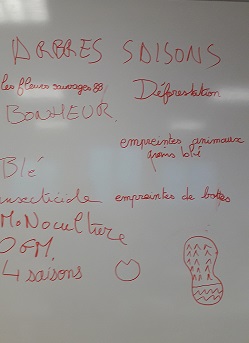 ARBRES SAISONS
les fleurs sauvages
Déforestation
BONHEUR
empreintes animaux
grains blé
Blé
insecticide
empreintes de bottes
MoNoculture
OGM
4 saisons